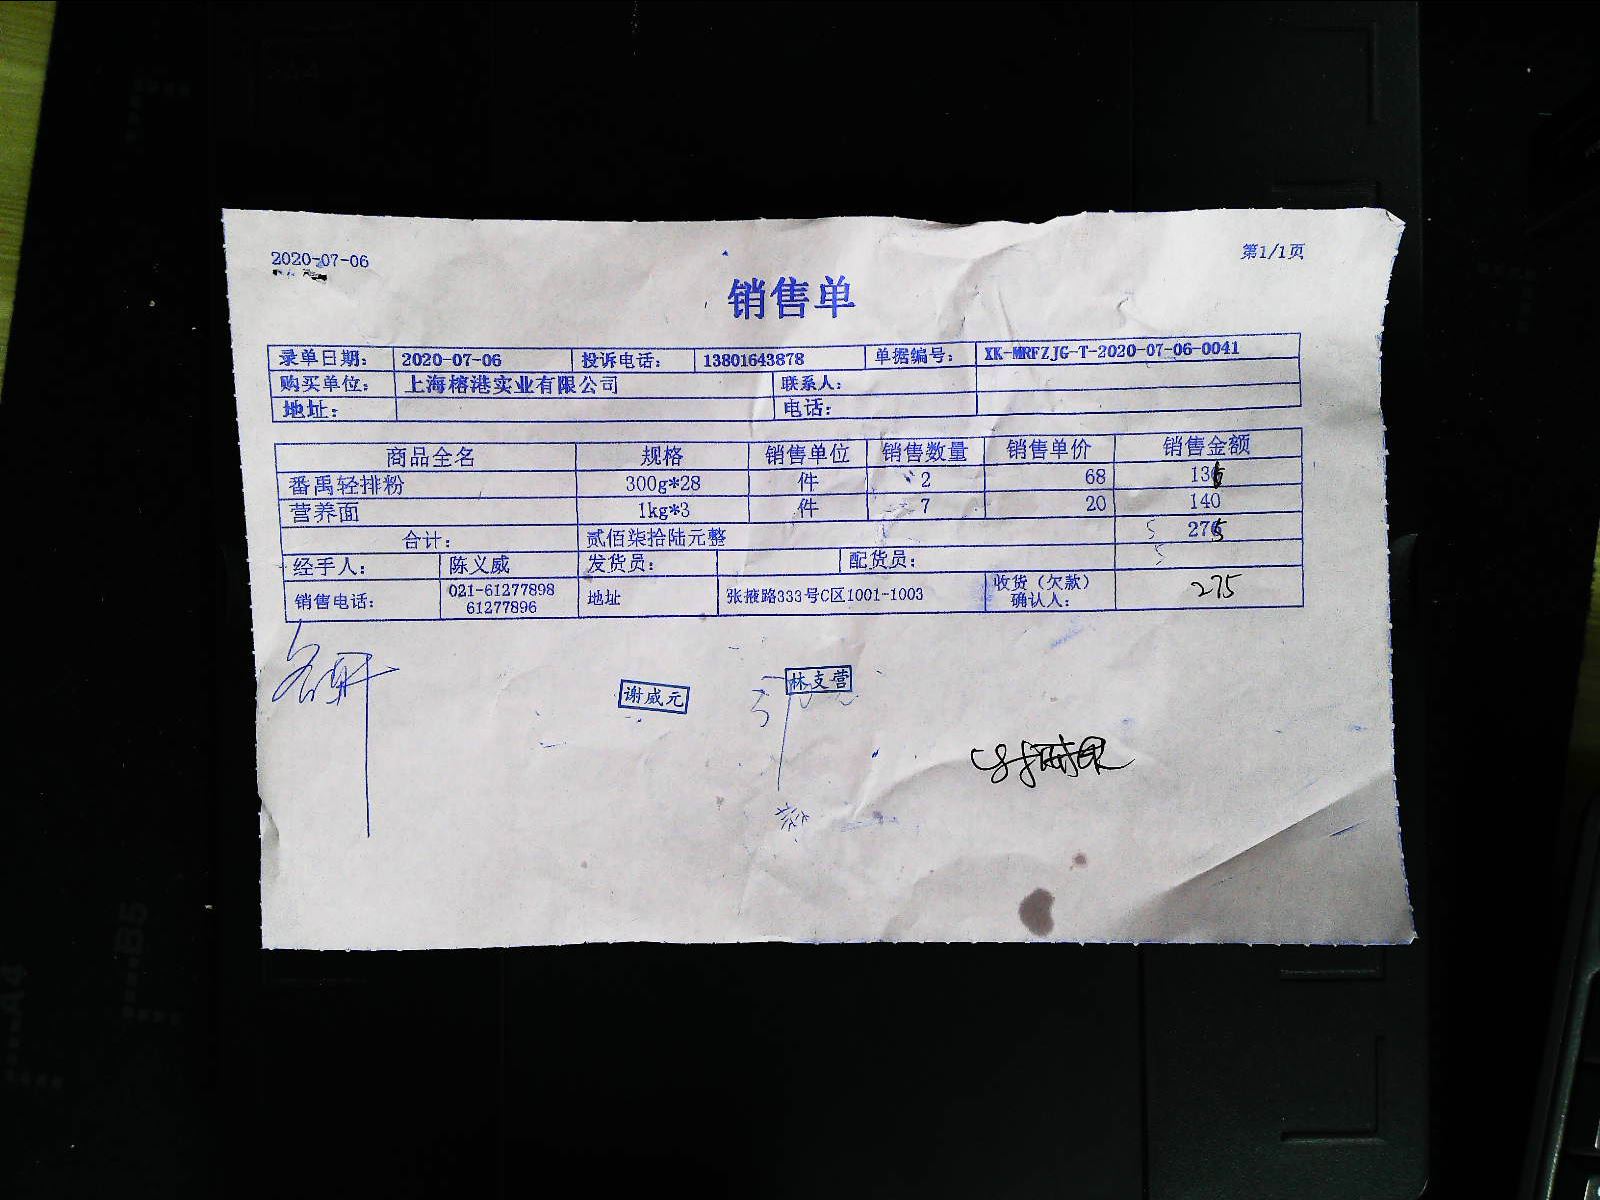 2020-07-06 第1/1页
销售单
录单日期: 2020-07-06 投诉电话: 13801643878 单据编号: XK-MRFZJG-T-2020-07-06-0041
购买单位: 上海榕港实业有限公司 联系人:
地址: 电话:
商品全名 规格 销售单位 销售数量 销售单价 销售金额
番禹轻排粉 300g*28 件 2 68 135
营养面 1kg*3 件 7 20 140
合计: 贰佰柒拾陆元整 275
经手人: 陈义威 发货员: 配货员:
销售电话: 021-61277898 地址 张掖路333号C区1001-1003 收货（欠款） 275
61277896 确认人:
谢威元 林支营
B5
A4